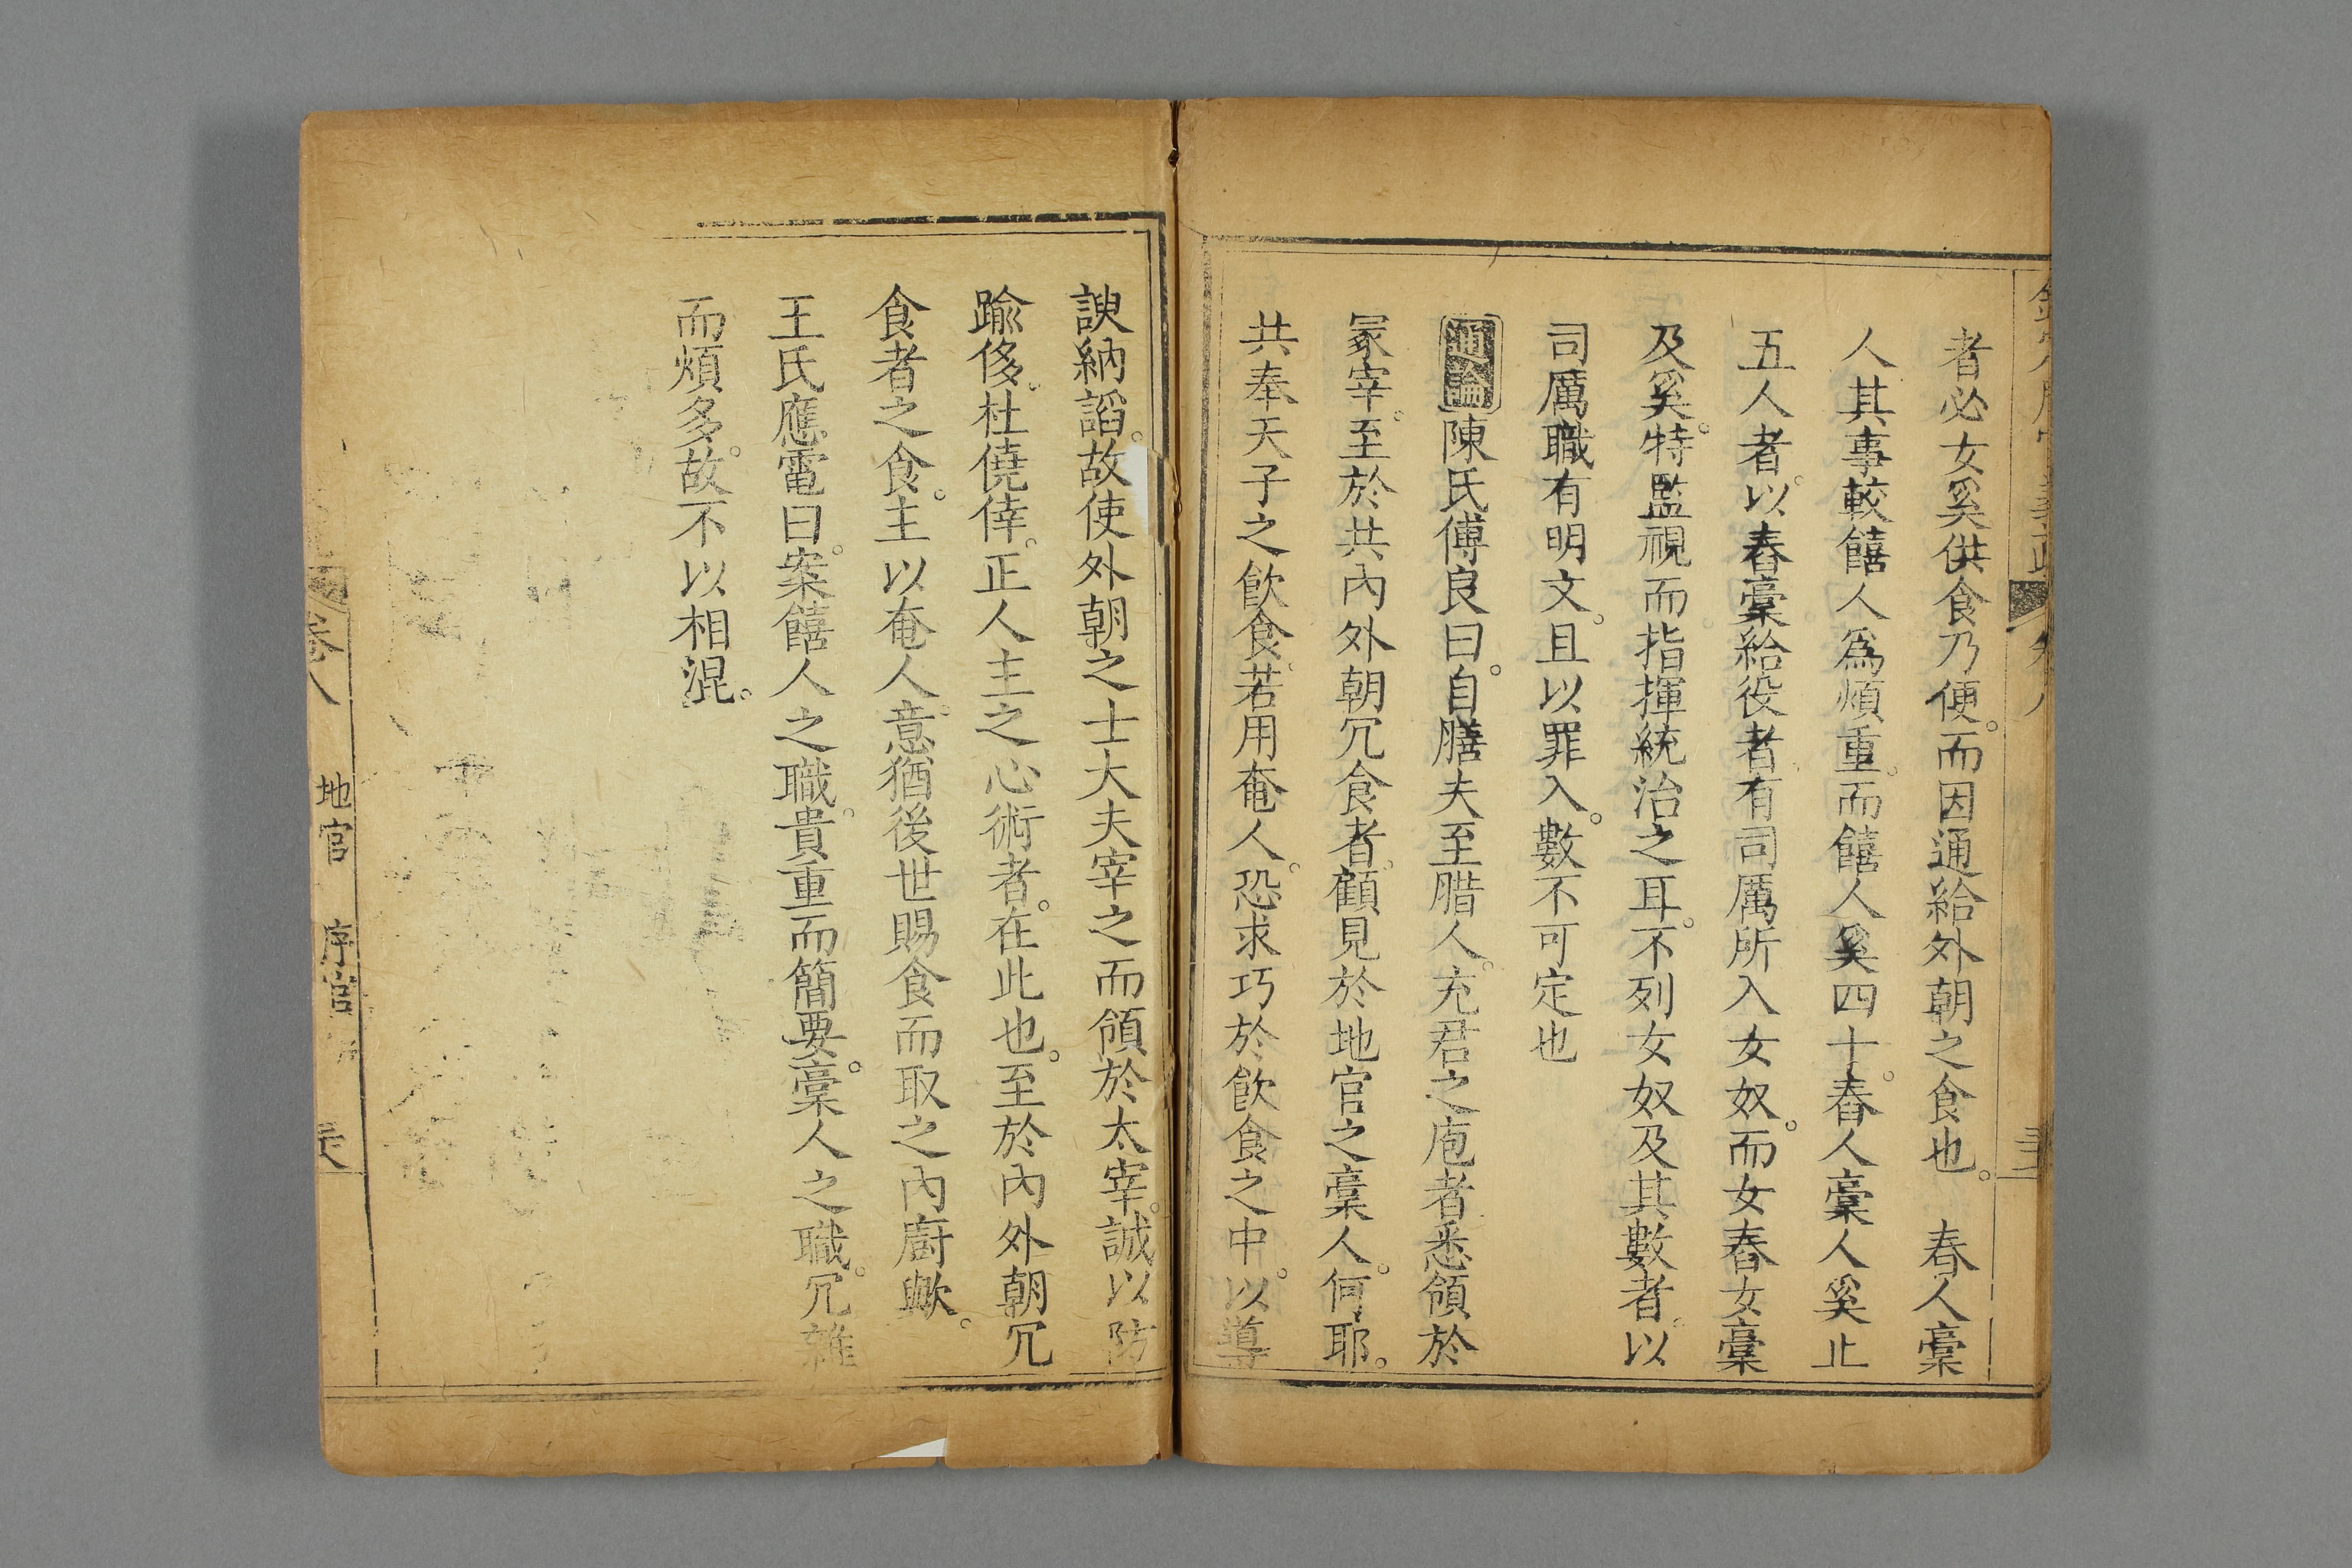 者必女奚供食乃便。而因通給外朝之食也。　舂人槀
人其事較饎人爲煩重。而饎人奚四十。舂人槀人奚止
五人者。以舂槀給役者。有司厲所入女奴。而女舂女槀
及奚。特監視而指揮統治之耳。不列女奴及其數者。以
司厲職有明文。且以罪入。數不可定也
通論陳氏傅良曰。自膳夫至腊人。充君之庖者悉領於
冢宰。至於共內外朝冗食者。顧見於地官之槀人。何耶。
共奉天子之飮食。若用奄人。恐求巧於飮食之中。以導
諛納謟。故使外朝之士大夫宰之而領於太宰。誠以防
踰侈。杜僥倖。正人主之心術者。在此也。至於內外朝冗
食者之食。主以奄人。意猶後世賜食而取之內廚歟。
王氏應電曰。案饎人之職。貴重而簡要。槀人之職。冗雜
而煩多。故不以相混。
卷八　地官　序官